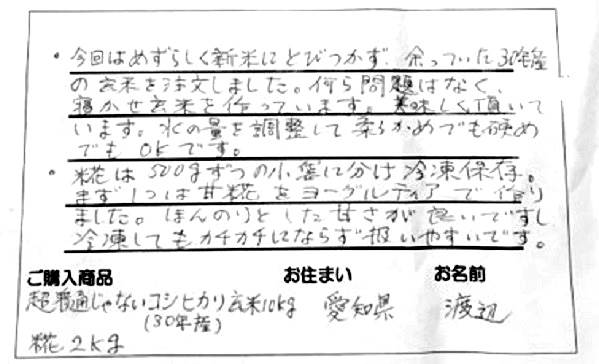 ・今回はめずらしく新米にとびつかず、余っていた30年産
の玄米を注文しました。何ら問題はなく、
寝かせ玄米を作っています。美味しく頂いて
います。水の量を調整して柔らかめでも硬め
でもOKです。
・糀は500gずつの小袋に分け冷凍保存。
まず1つは甘糀をヨーグルティアで作り
ました。ほんのりとした甘さが良いですし
冷凍してもカチカチにならず扱いやすいです。
ご購入商品 お住まい お名前
超普通じゃないコシヒカリ玄米10kg 愛知県 渡辺
(30年産)
糀2kg